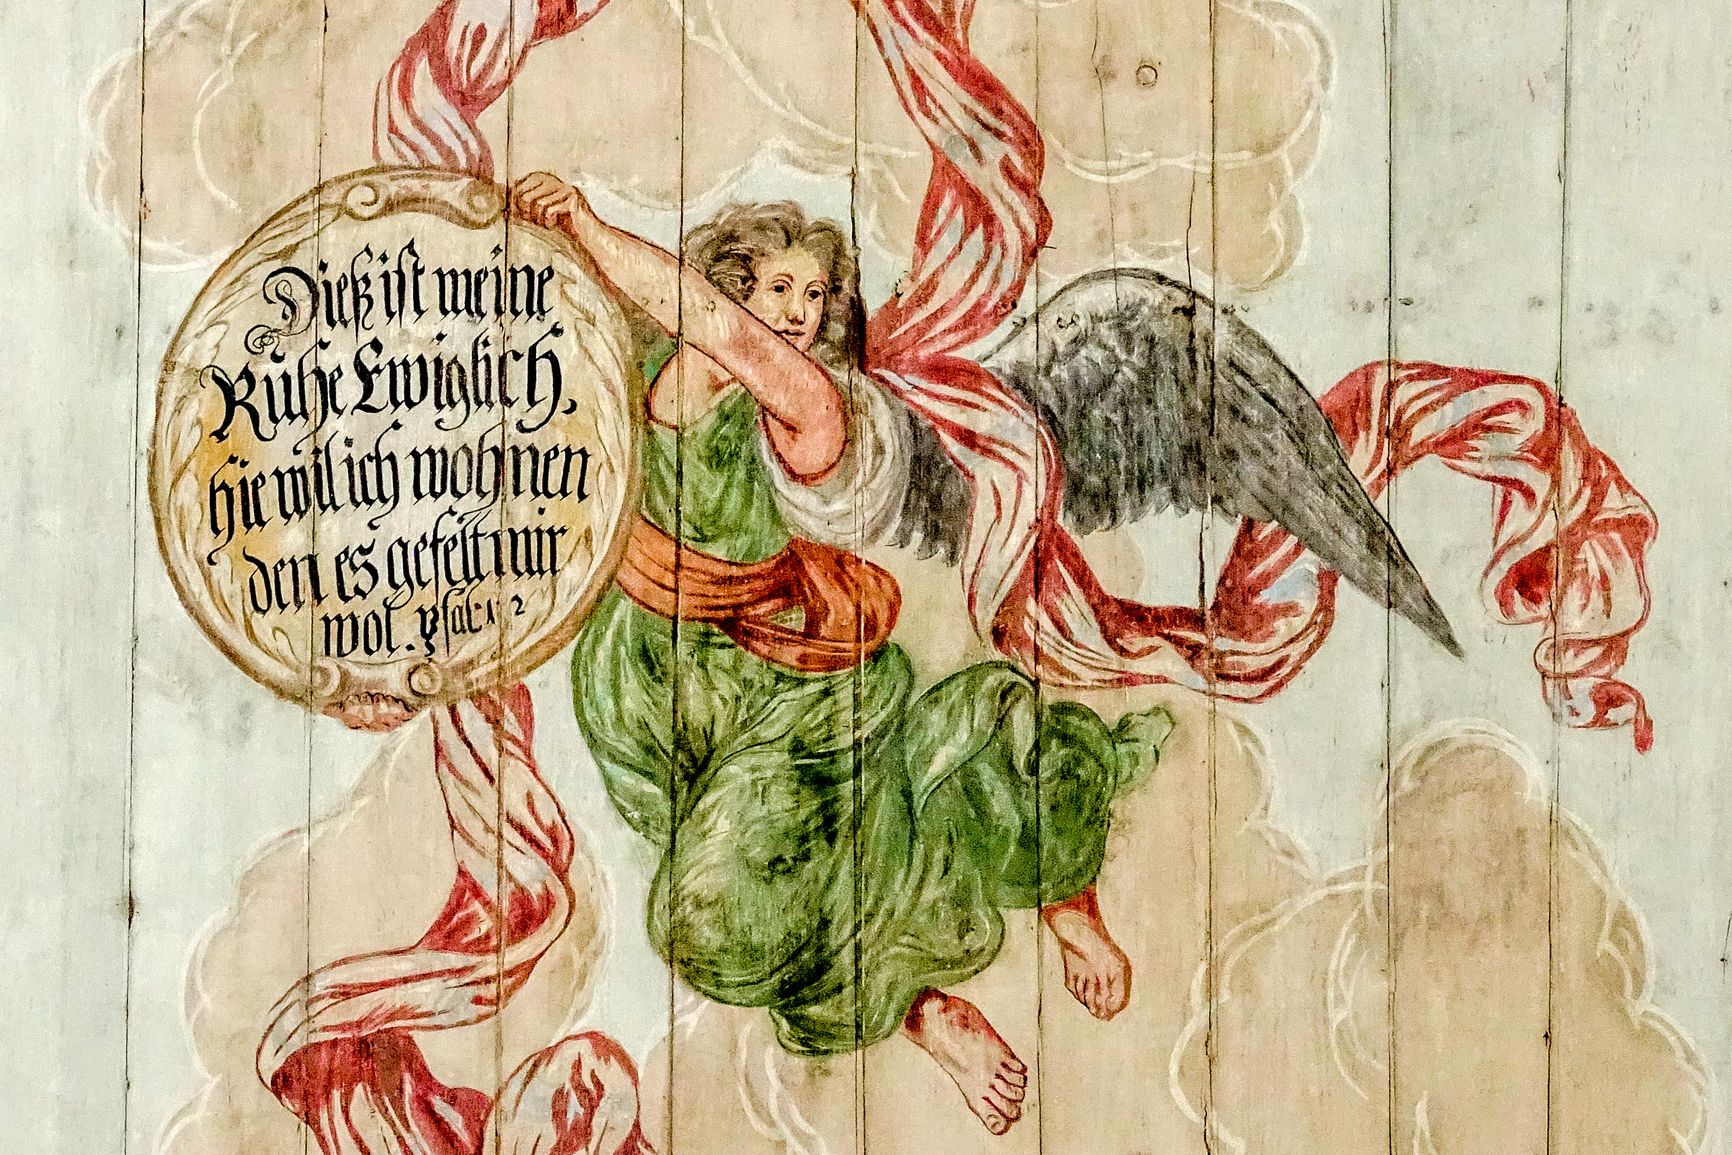 Dieß ist meine
Ruhe Ewiglich,
hie will ich wohnen
den es gefelt mir
wol. Psal: 1 2